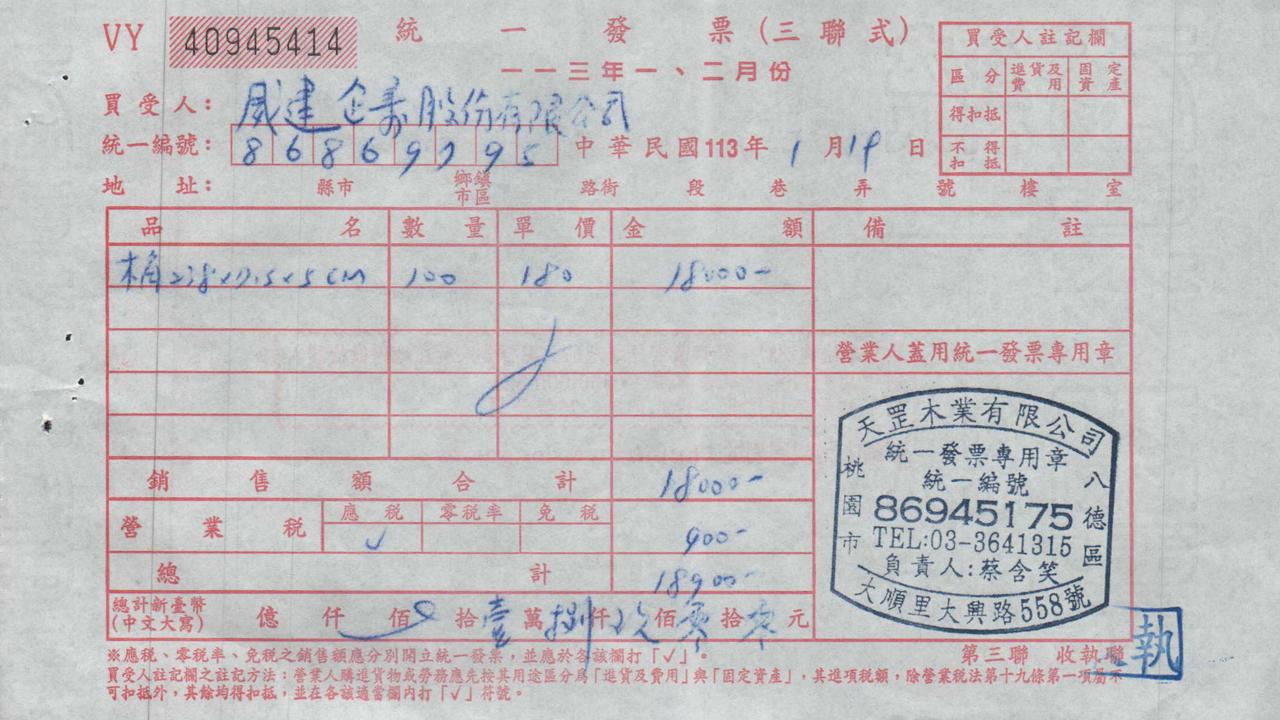 VY 40945414 統一發票(三聯式)
一一三年一、二月份
買受人註記欄
區分 進貨及費用 固定資產
得扣抵
不得扣抵
買受人: 威建企業股份有限公司
統一編號: 86869795 中華民國113年1月19日
地址: 縣市 鄉鎮市區 路街 段 巷 弄 號 樓 室
品名 數量 單價 金額 備註
木角 238x7.5x5CM 100 180 18000-
營業人蓋用統一發票專用章
銷售額合計 18000-
營業稅 應稅 零稅率 免稅
✓ 900-
總計 18900-
總計新臺幣
(中文大寫) 億 仟 佰 拾壹萬捌仟玖佰零拾零元
天罡木業有限公司
統一發票專用章
統一編號
86945175
TEL:03-3641315
負責人:蔡含笑
桃園市
八德區
大順里大興路558號
※應稅、零稅率、免稅之銷售額應分別開立統一發票,並應於各該欄打「✓」。
第三聯 收執聯
執
買受人註記欄之註記方法:營業人購進貨物或勞務應先按其用途區分為「進貨及費用」與「固定資產」,其進項稅額,除營業稅法第十九條第一項屬不
可扣抵外,其餘均得扣抵,並在各該適當欄內打「✓」符號。